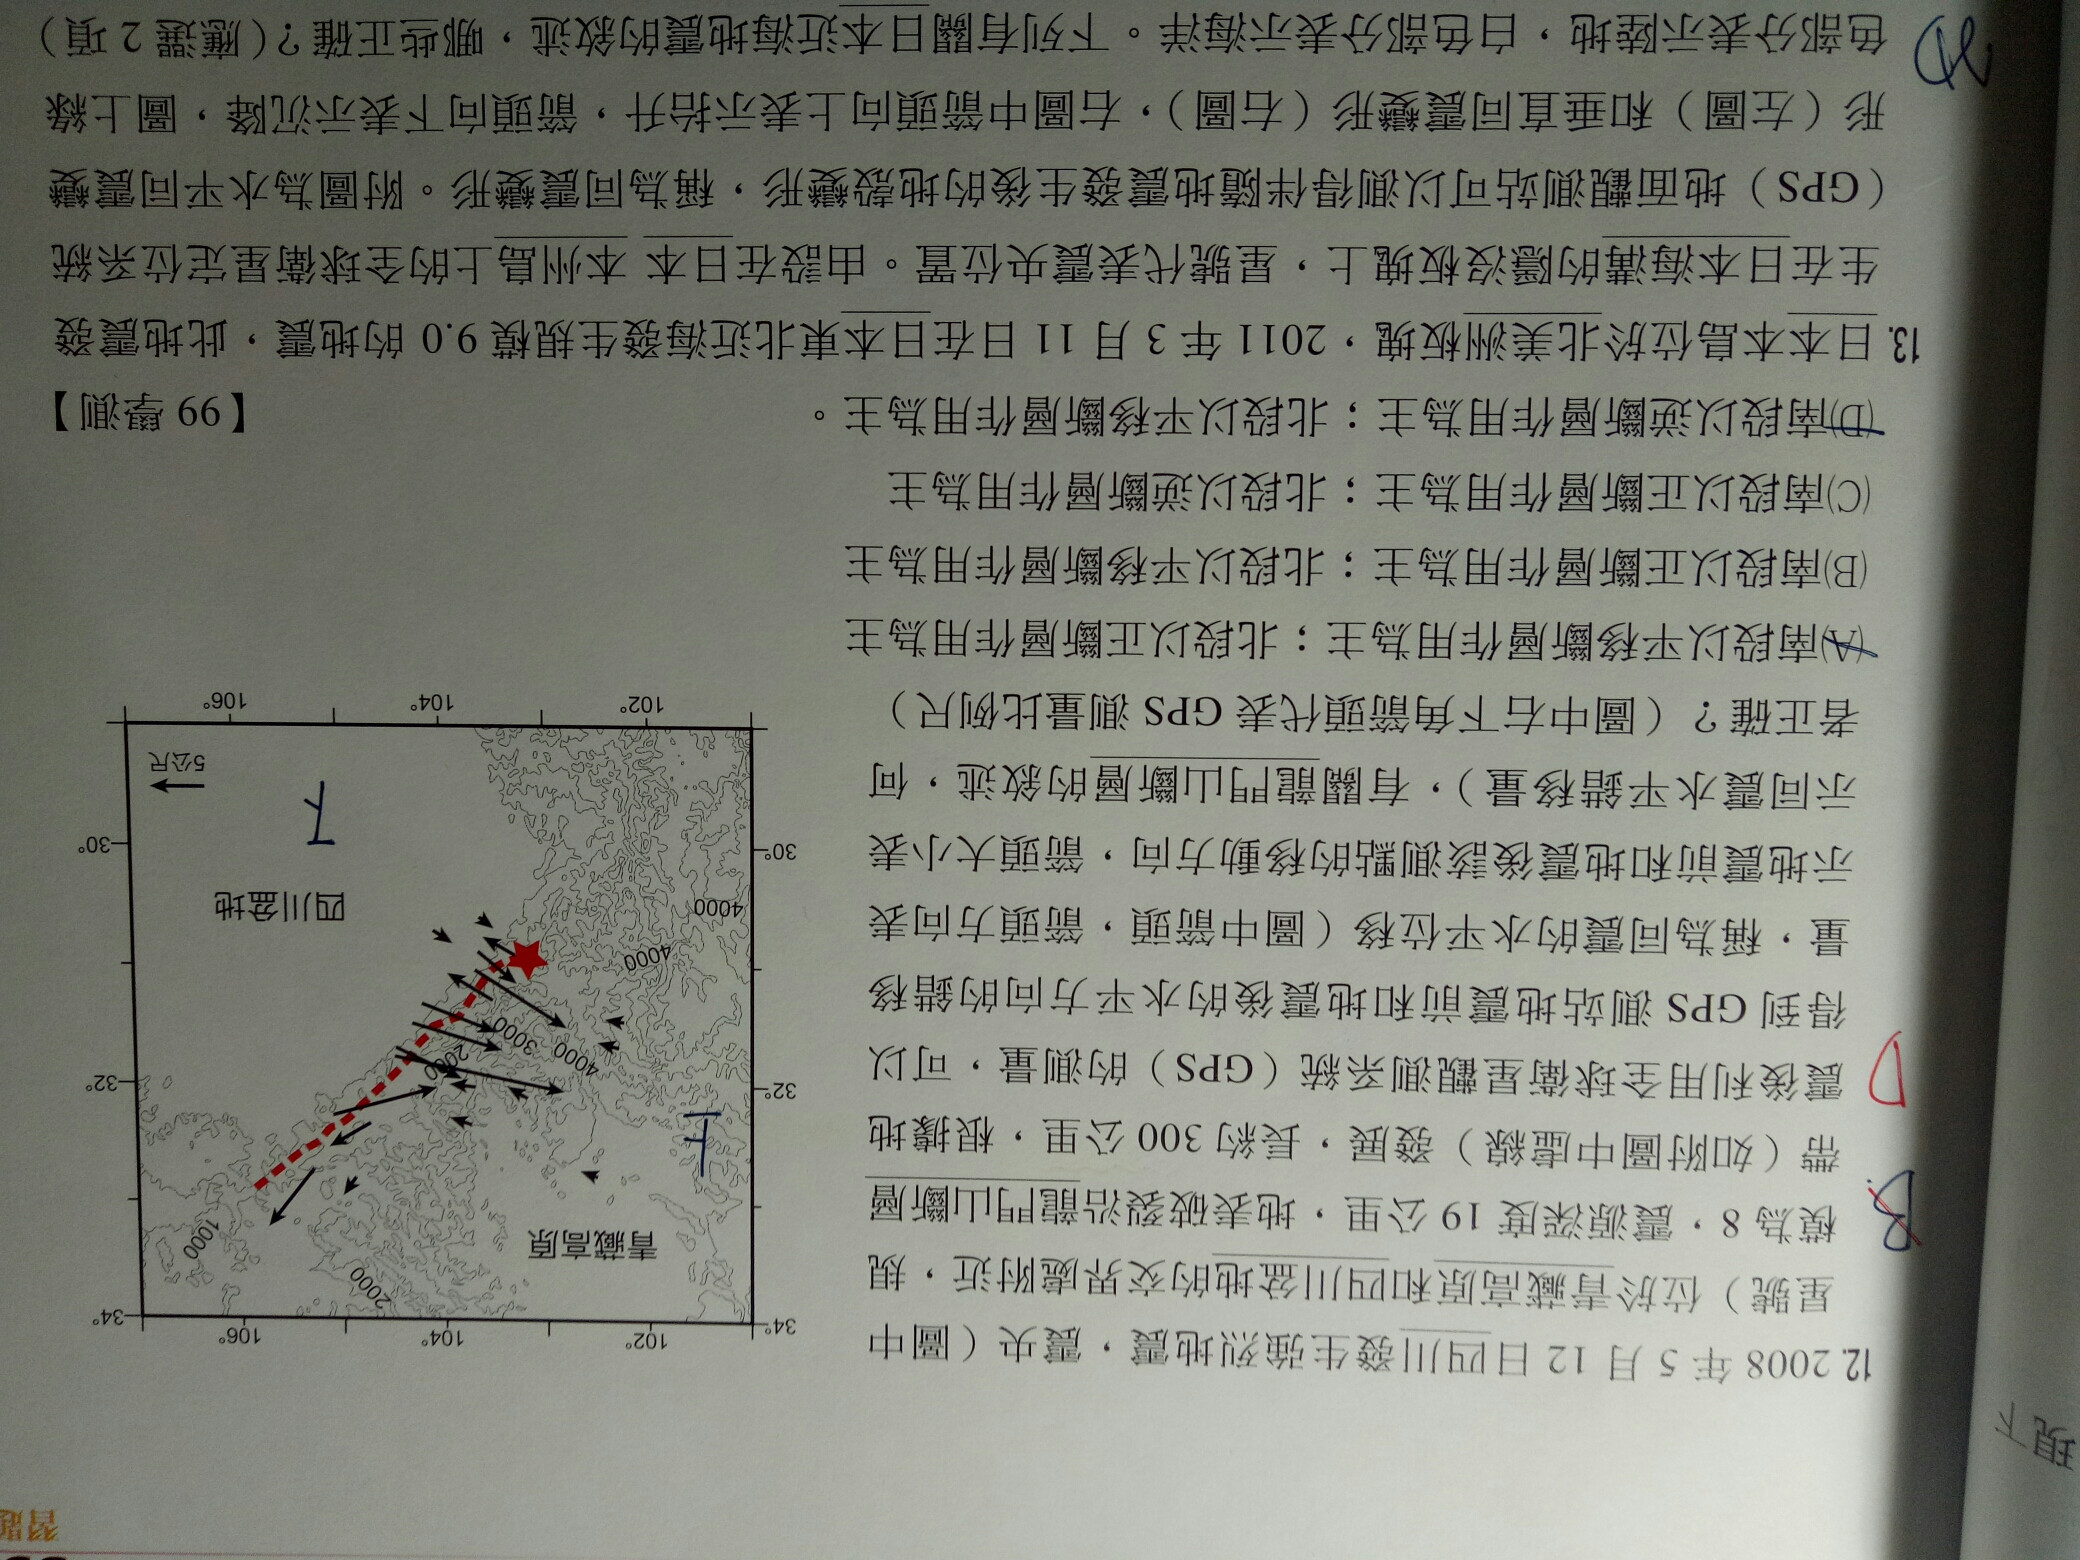 習題
現下
12. 2008 年 5 月 12 日四川發生強烈地震，震央（圖中
星號）位於青藏高原和四川盆地的交界處附近，規
模為 8，震源深度 19 公里，地表破裂沿龍門山斷層
帶（如附圖中虛線）發展，長約 300 公里，根據地
震後利用全球衛星觀測系統（GPS）的測量，可以
得到 GPS 測站地震前和地震後的水平方向的錯移
量，稱為同震的水平位移（圖中箭頭，箭頭方向表
示地震前和地震後該測點的移動方向，箭頭大小表
示同震水平錯移量），有關龍門山斷層的敘述，何
者正確？（圖中右下角箭頭代表 GPS 測量比例尺）
(A)南段以平移斷層作用為主；北段以正斷層作用為主
(B)南段以正斷層作用為主；北段以平移斷層作用為主
(C)南段以正斷層作用為主；北段以逆斷層作用為主
(D)南段以逆斷層作用為主；北段以平移斷層作用為主。
【99 學測】
B
D
102° 104° 106°
34° 34°
青藏高原
2000
1000
上
32° 32°
4000 3000 2000
4000
4000
四川盆地
30° 30°
下
5公尺
102° 104° 106°
13. 日本本島位於北美洲板塊，2011 年 3 月 11 日在日本東北近海發生規模 9.0 的地震，此地震發
生在日本海溝的隱沒板塊上，星號代表震央位置。由設在日本 本州島上的全球衛星定位系統
（GPS）地面觀測站可以測得伴隨地震發生後的地殼變形，稱為同震變形。附圖為水平同震變
形（左圖）和垂直同震變形（右圖），右圖中箭頭向上表示抬升，箭頭向下表示沉降，圖上綠
色部分表示陸地，白色部分表示海洋。下列有關日本近海地震的敘述，哪些正確？(應選 2 項)